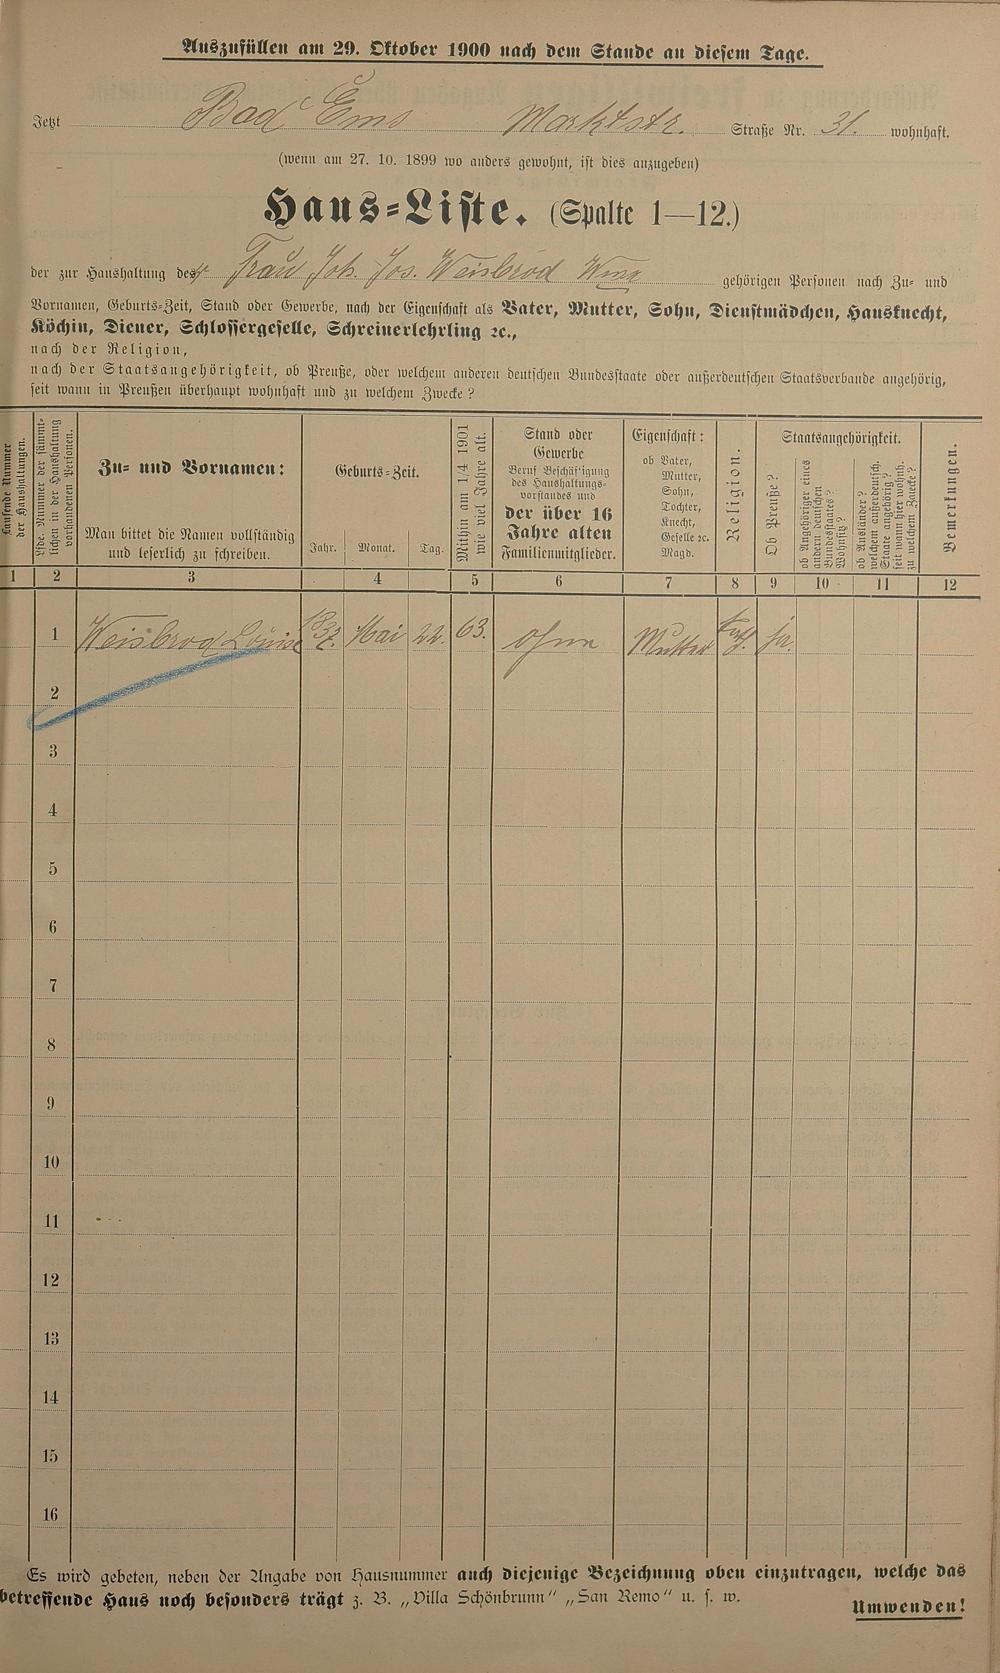 Auszufüllen am 29. Oktober 1900 nach dem Stande an diesem Tage.
Jetzt Bad Ems Marktstr. Straße Nr. 31. wohnhaft.
(wenn am 27. 10. 1899 wo anders gewohnt, ist dies anzugeben)
Haus-Liste. (Spalte 1—12.)
der zur Haushaltung der Frau Joh. Jos. Weisbrod Wwe gehörigen Personen nach Zu- und
Vornamen, Geburts-Zeit, Stand oder Gewerbe, nach der Eigenschaft als Vater, Mutter, Sohn, Dienstmädchen, Hausknecht,
Köchin, Diener, Schlossergeselle, Schreinerlehrling ꝛc.,
nach der Religion,
nach der Staatsangehörigkeit, ob Preuße, oder welchem anderen deutschen Bundesstaate oder außerdeutschen Staatsverbande angehörig,
seit wann in Preußen überhaupt wohnhaft und zu welchem Zwecke?
Laufende Nummer
der Haushaltungen.
Lfde. Nummer der sämmt-
lichen in der Haushaltung
vorhandenen Personen.
Zu- und Vornamen:
Man bittet die Namen vollständig
und leserlich zu schreiben.
Geburts-Zeit.
Jahr. Monat. Tag.
Mithin am 1/4 1901
wie viel Jahre alt.
Stand oder
Gewerbe
Beruf Beschäftigung
des Haushaltungs-
vorstandes und
der über 16
Jahre alten
Familienmitglieder.
Eigenschaft:
ob Vater,
Mutter,
Sohn,
Tochter,
Knecht,
Geselle ꝛc.
Magd.
Religion.
Staatsangehörigkeit.
Ob Preuße?
ob Angehöriger eines
andern deutschen
Bundesstaates?
Wohnsitz?
ob Ausländer?
welchem außerdeutsch.
Staate angehörig?
seit wann hier wohnh.
zu welchem Zwecke?
Bemerkungen.
1 2 3 4 5 6 7 8 9 10 11 12
1 Weisbrod Louise 1837. Mai 22. 63. ohne Mutter kath. ja.
2
3
4
5
6
7
8
9
10
11
12
13
14
15
16
Es wird gebeten, neben der Angabe von Hausnummer auch diejenige Bezeichnung oben einzutragen, welche das
betreffende Haus noch besonders trägt z. B. „Villa Schönbrunn“ „San Remo“ u. s. w.
Umwenden!